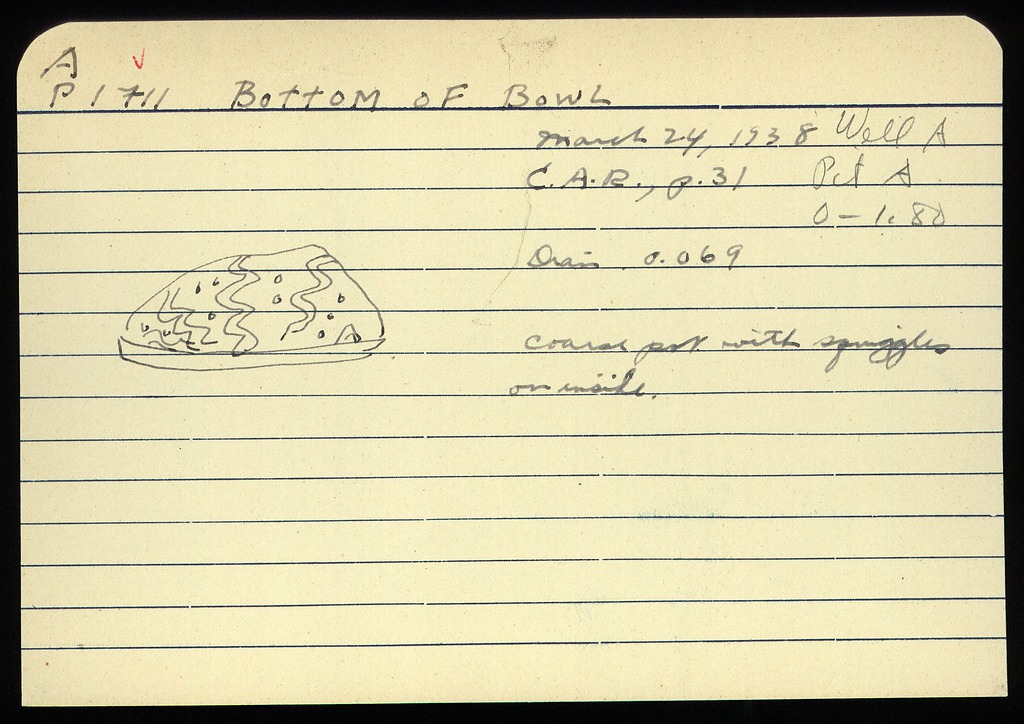 A
P 1711 BOTTOM OF BOWL
March 24, 1938 Well A
C.A.R., p.31 Pit A
0-1.80
Diam 0.069
coarse pot with squiggles
on inside.